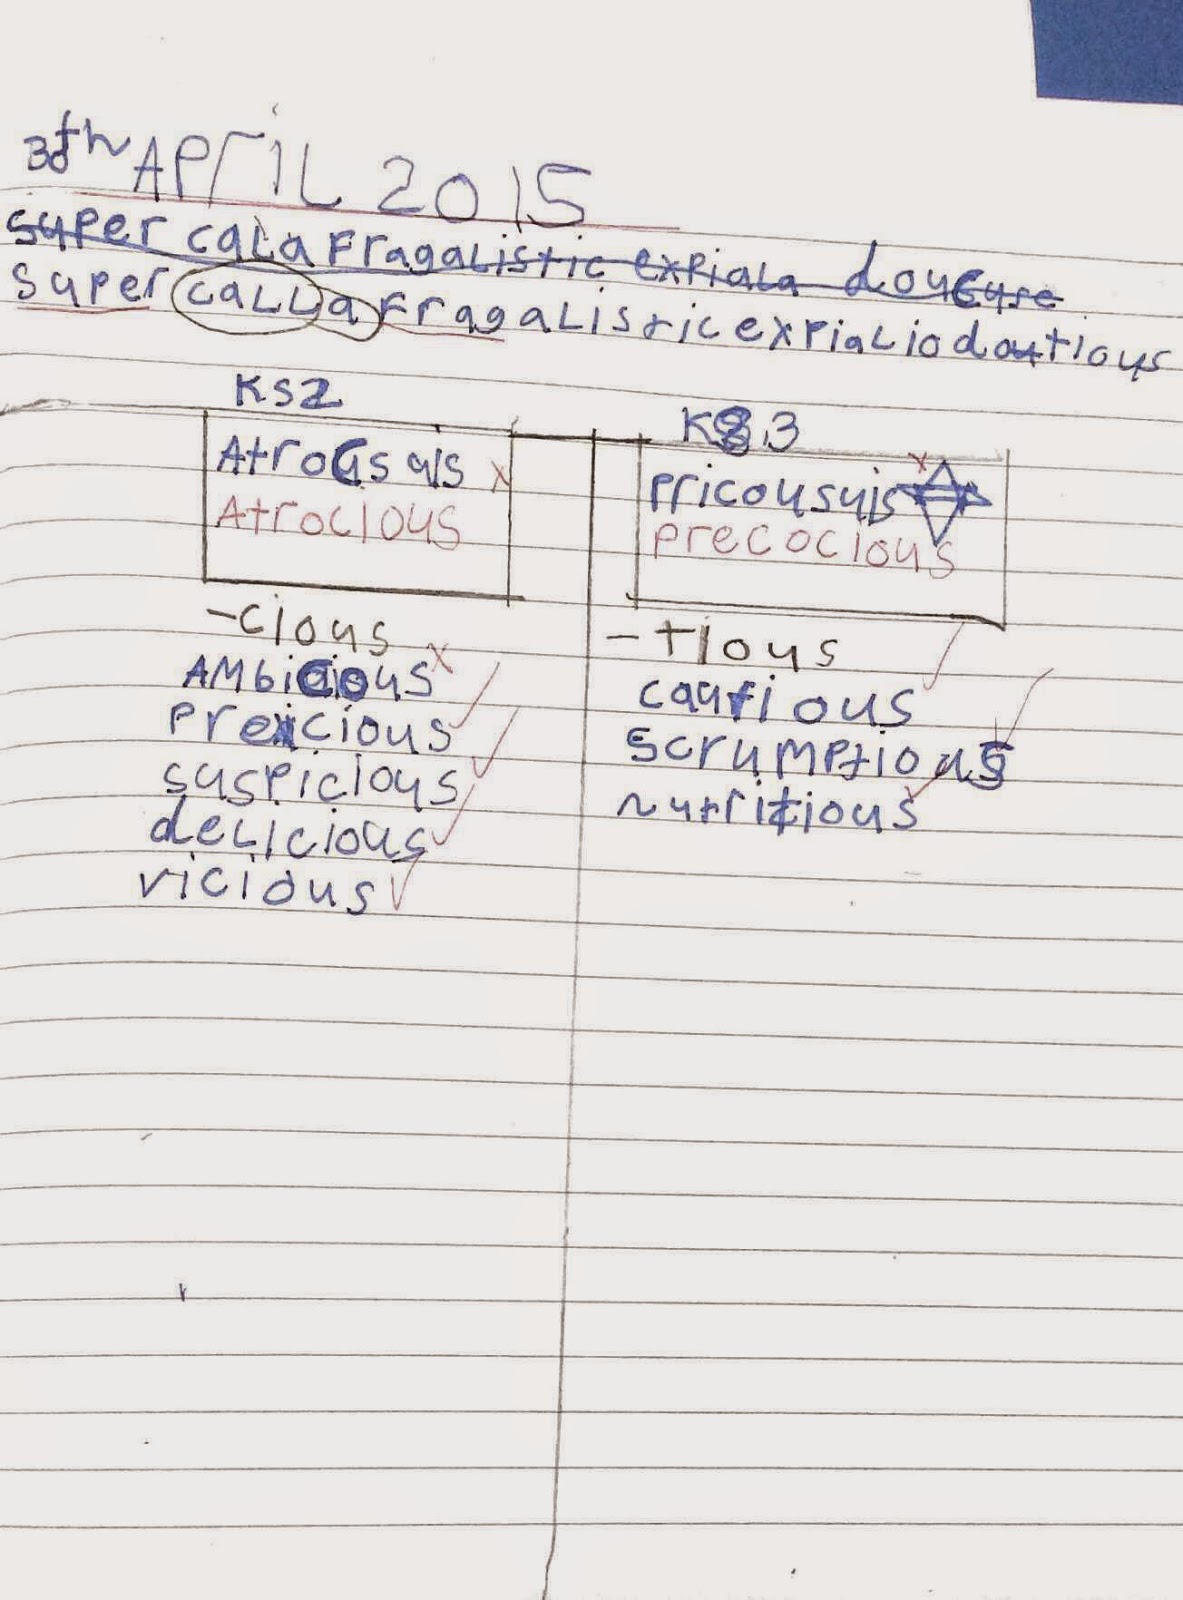 30th APril 2015
super cala fragalistic expiala doucuse
super calla fragalisticexpialiodoutious
KS2
AtroCsuis x
Atrocious
-cious
AMbicious x
precicious
suspicious
delicious
vicious
KS3
pricousuis x
precocious
-tious
cautious
scrumptious
nutritious